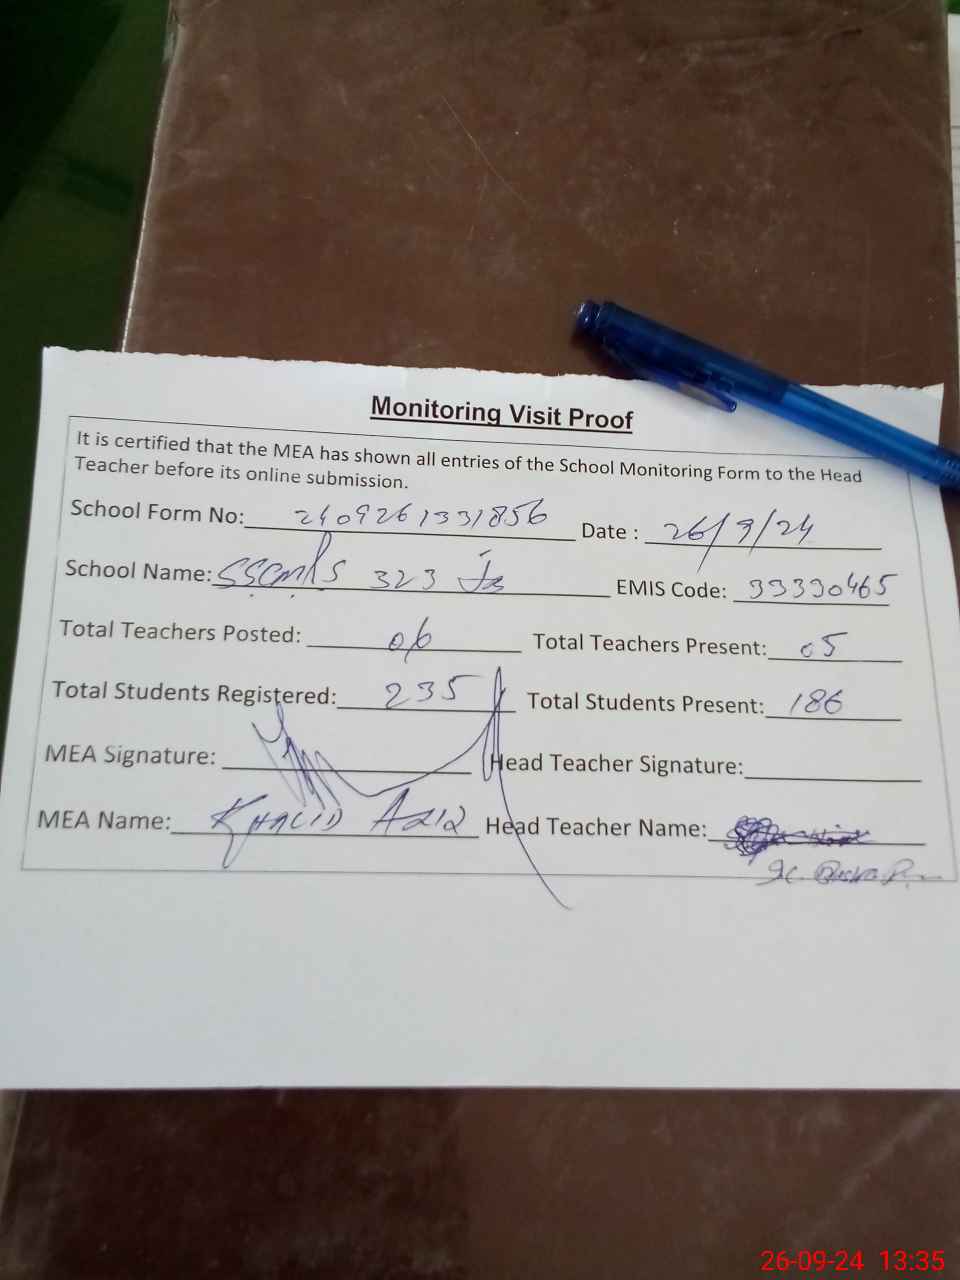 Monitoring Visit Proof
It is certified that the MEA has shown all entries of the School Monitoring Form to the Head
Teacher before its online submission.
School Form No: 2409261331856 Date : 26/9/24
School Name: 323 EMIS Code: 33330465
Total Teachers Posted: 06 Total Teachers Present: 05
Total Students Registered: 235 Total Students Present: 186
MEA Signature: Head Teacher Signature:
MEA Name: KHALID AZIZ Head Teacher Name:
26-09-24 13:35